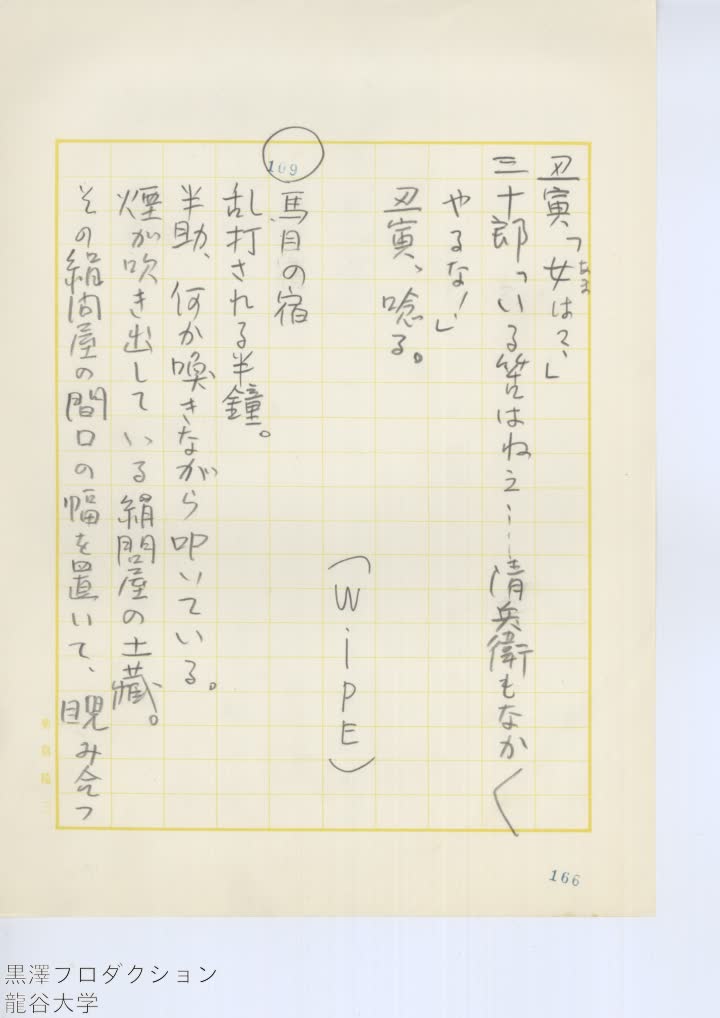 丑寅「女は？」
あま
三十郎「いる筈はねえ……清兵衛もなか〳〵
やるな！」
丑寅、唸る。
（WiPE）
109
馬目の宿
乱打される半鐘。
半助、何か喚きながら叩いている。
煙が吹き出している絹問屋の土蔵。
その絹問屋の間口の幅を置いて、睨み合つ
166
黒澤プロダクション
龍谷大学